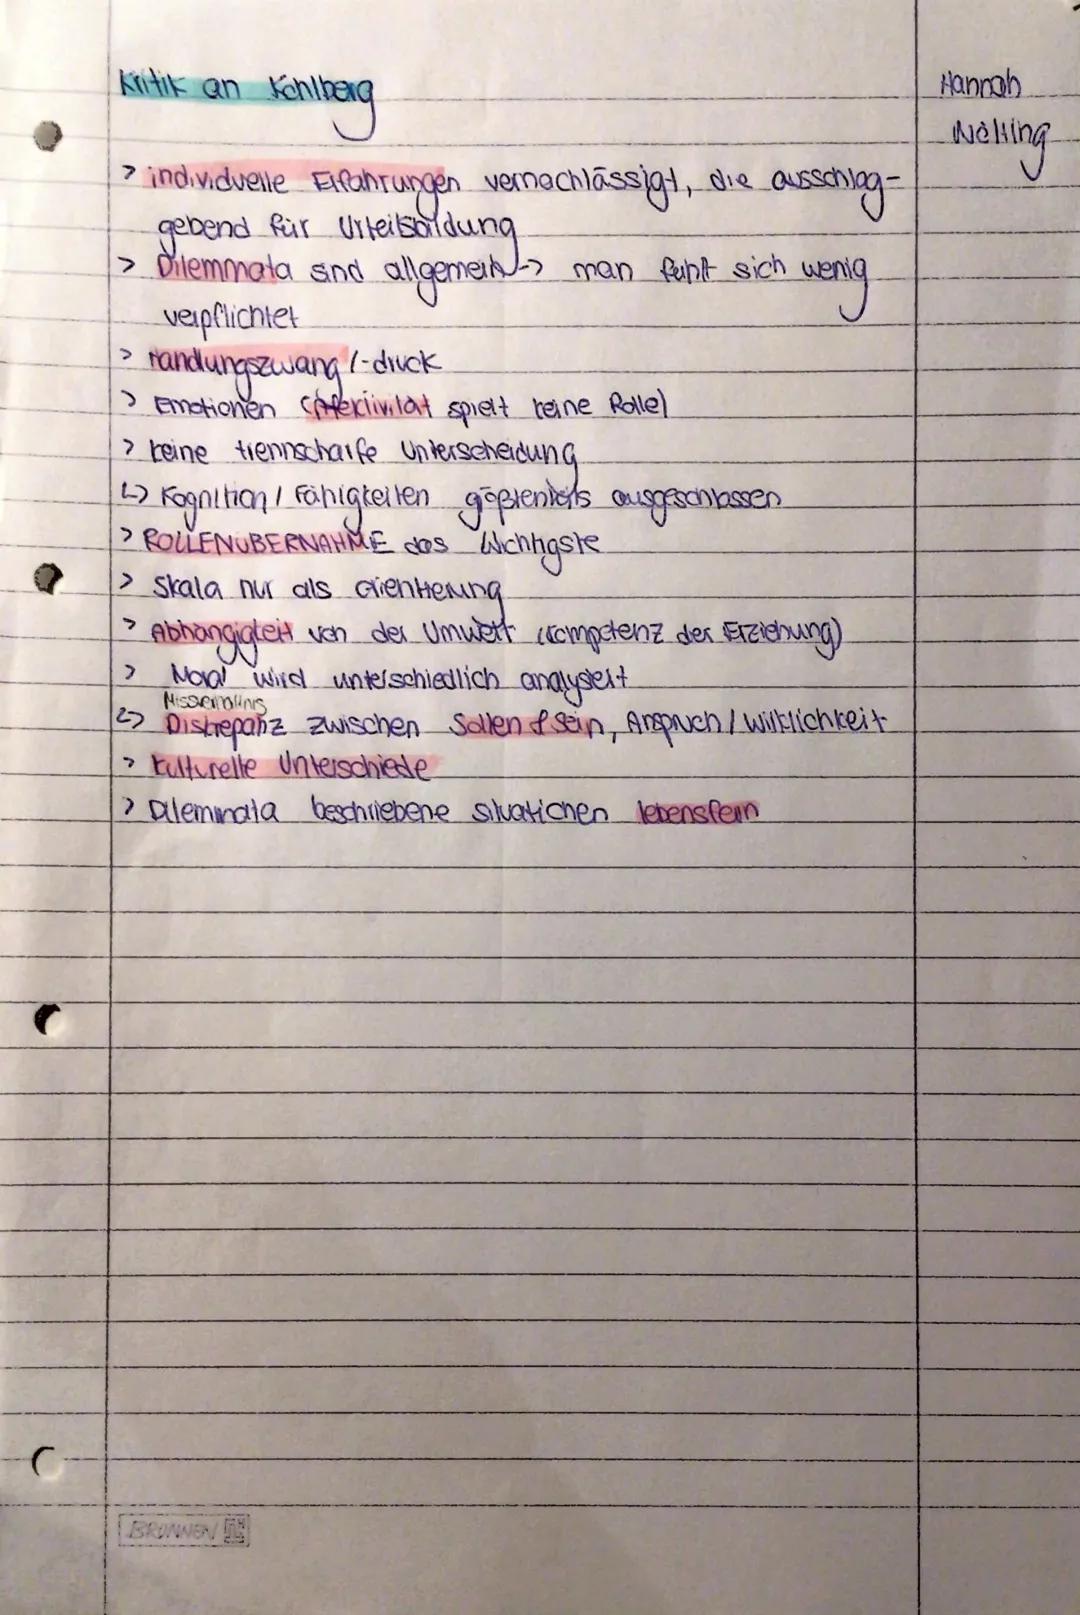 Kritik an Kohlberg
Hannah
Nölting
> individuelle Erfahrungen vernachlässigt, die ausschlag-
gebend für Urteilsbildung
> Dilemmata sind allgemein -> man fühlt sich wenig
verpflichtet
> Handlungszwang /-druck
> Emotionen (Affektivität spielt keine Rolle)
> keine trennscharfe Unterscheidung
↳ Kognition / Fähigkeiten größtenteils ausgeschlossen
> ROLLENÜBERNAHME das Wichtigste
> Skala nur als Orientierung
> Abhängigkeit von der Umwelt (Kompetenz der Erziehung)
> Moral wird unterschiedlich analysiert
Missverhältnis
↳ Diskrepanz zwischen Sollen & Sein, Anspruch / Wirklichkeit
> kulturelle Unterschiede
> Dilemmata beschriebene Situationen lebensfern
BRUNNEN